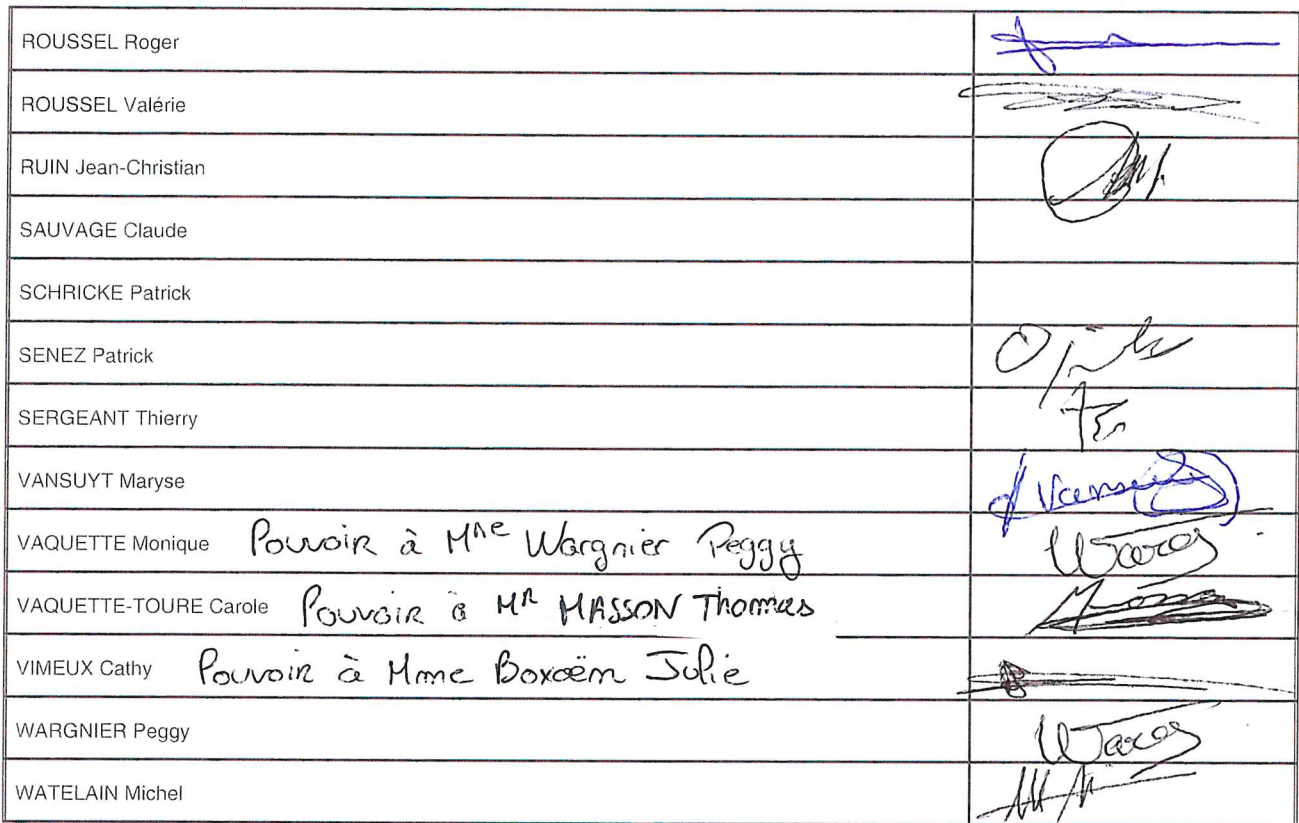 ROUSSEL Roger
ROUSSEL Valérie
RUIN Jean-Christian
SAUVAGE Claude
SCHRICKE Patrick
SENEZ Patrick
SERGEANT Thierry
VANSUYT Maryse
VAQUETTE Monique Pouvoir à Mme Wargnier Peggy
VAQUETTE-TOURE Carole Pouvoir à Mr MASSON Thomas
VIMEUX Cathy Pouvoir à Mme Boxoën Julie
WARGNIER Peggy
WATELAIN Michel